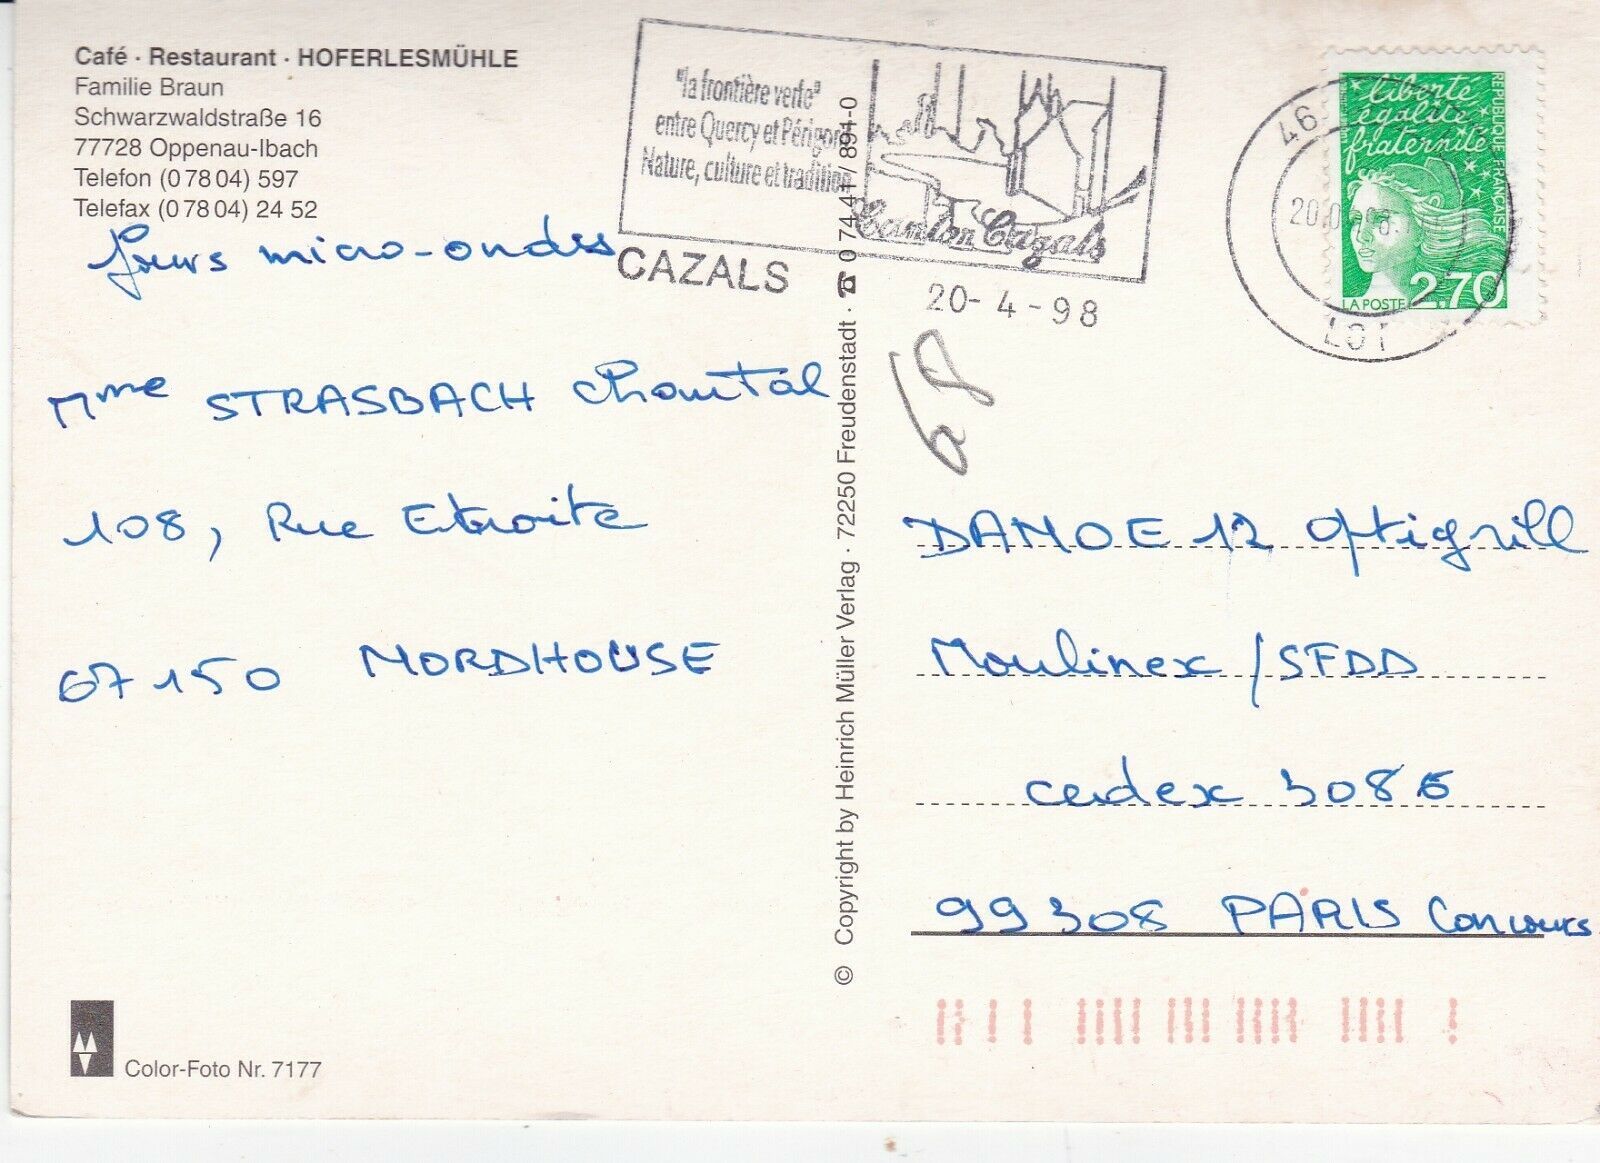 Café · Restaurant · HOFERLESMÜHLE
Familie Braun
Schwarzwaldstraße 16
77728 Oppenau-Ibach
Telefon (0 78 04) 597
Telefax (0 78 04) 24 52
fours micro-ondes
Mme STRASBACH Chantal
108, Rue Etroite
67150 NORDHOUSE
Color-Foto Nr. 7177
© Copyright by Heinrich Müller Verlag · 72250 Freudenstadt · ☎ 0 74 41 / 891-0
"la frontière verte"
entre Quercy et Périgord
Nature, culture et tradition
Canton Cazals
CAZALS
20-4-98
46
LOT
liberté
égalité
fraternité
REPUBLIQUE FRANÇAISE
LA POSTE
2,70
68
DANOE 12 Optigrill
Moulinex/SFDD
cedex 3086
99308 PARIS Concours